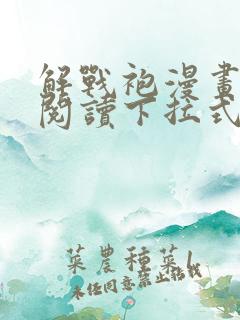 解戰袍漫畫
閱讀下拉式
菜農種菜!
未任同意禁止転伐